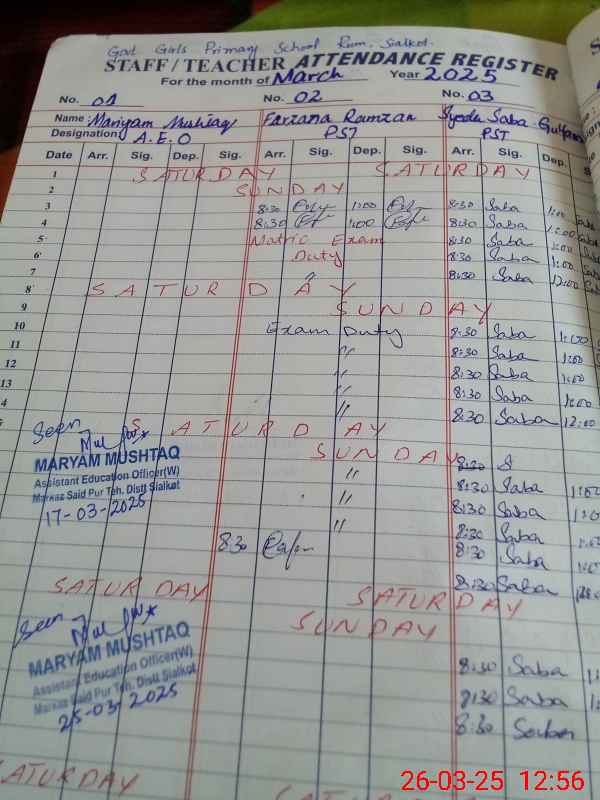 Govt Girls Primary School Rum, Sialkot.
STAFF / TEACHER ATTENDANCE REGISTER
For the month of March Year 2025
No. 01 No. 02 No. 03
Name Mariyam Mushtaq Farzana Ramzan Syeda Saba Gulfam
Designation A.E.O PST PST
Date Arr. Sig. Dep. Sig. Arr. Sig. Dep. Sig. Arr. Sig. Dep.
1 SATURDAY SATURDAY
2 SUNDAY
3 8:30 1:00 8:30 Saba 1:00 Saba
4 8:30 1:00 8:30 Saba 1:00 Saba
5 Matric Exam 8:30 Saba 1:00 Saba
6 Duty 8:30 Saba 1:00
7 " 8:30 Saba 12:00
8 SATURDAY
9 SUNDAY
10 Exam Duty 8:30 Saba 1:00
11 " 8:30 Saba 1:00
12 " 8:30 Saba 1:00
13 " 8:30 Saba 1:00
4 " 8:30 Saba 12:00
Seen SATURDAY
SUNDAY 8:30 S
MARYAM MUSHTAQ
Assistant Education Officer(W)
Markaz Said Pur Teh. Distt Sialkot
17-03-2025
" 8:30 Saba 1:00
" 8:30 Saba 1:00
" 8:30 Saba
8:30 8:30 Saba
SATURDAY 8:30 Saba
SATURDAY
SUNDAY
Seen
MARYAM MUSHTAQ
Assistant Education Officer(W)
Markaz Said Pur Teh. Distt Sialkot
25-03-2025
8:30 Saba
8:30 Saba
8:30 Saba
SATURDAY
26-03-25 12:56